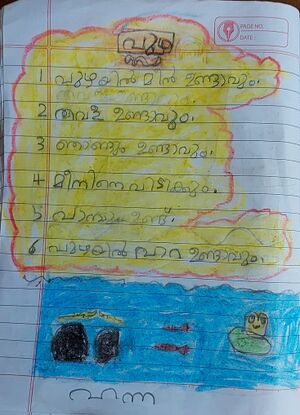 PAGE NO.
DATE:
പുഴ
1 പുഴയിൽ മീൻ ഉണ്ടാവും.
2 തവള ഉണ്ടാവും.
3 ഞണ്ടും ഉണ്ടാവും.
4 മീനിനെ പിടിക്കും.
5 പാമ്പും ഉണ്ട്.
6 പുഴയിൽ പാറ ഉണ്ടാവും.
ഹന്ന